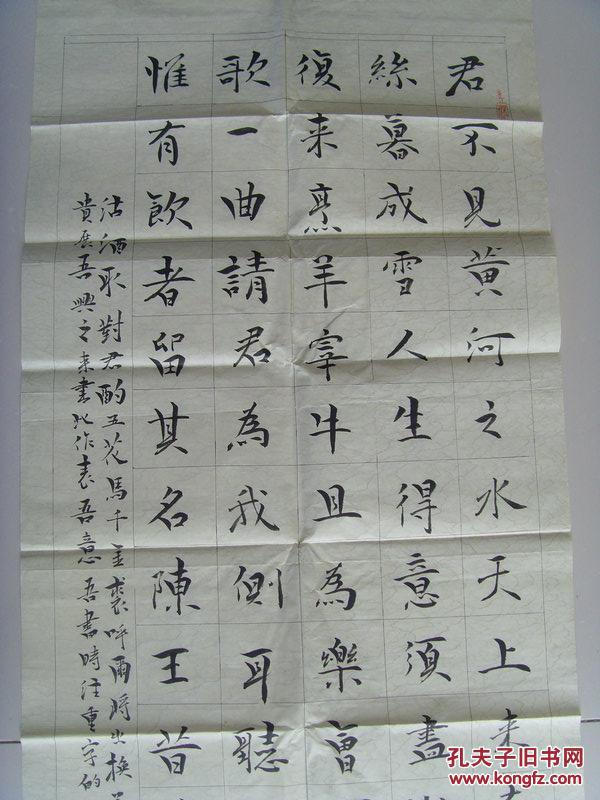 君不見黃河之水天上来
絲暮成雪人生得意須盡
復来烹羊宰牛且為樂會
歌一曲請君為我側耳聽
惟有飲者留其名陳王昔
沽酒取對君酌五花馬千金裘呼兒將出換美
貴度吾興之来書此作表吾意吾書時注重字的
孔夫子旧书网
www.kongfz.com